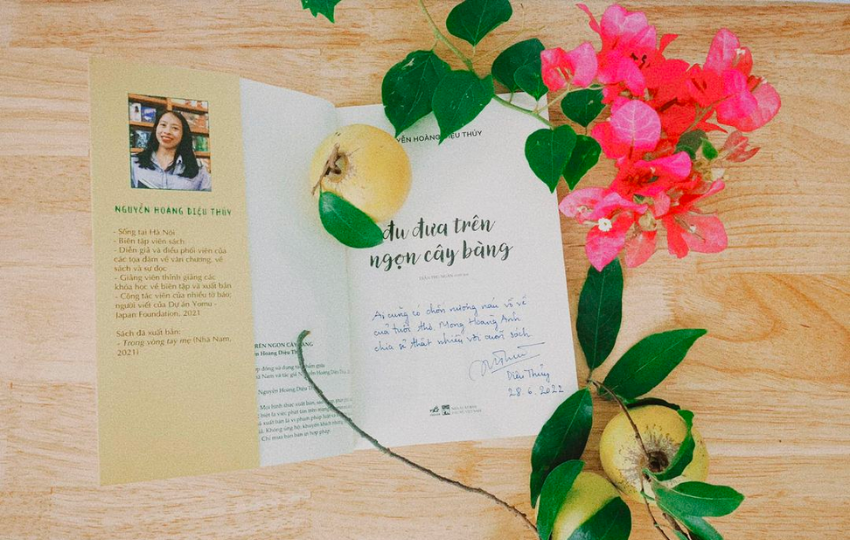 NGUYỄN HOÀNG DIỆU THỦY
- Sống tại Hà Nội
- Biên tập viên sách
- Diễn giả và điều phối viên của
các tọa đàm về văn chương, về
sách và sự đọc
- Giảng viên thỉnh giảng các
khóa học về biên tập và xuất bản
- Cộng tác viên của nhiều tờ báo;
người viết của Dự án Yomu -
Japan Foundation, 2021
Sách đã xuất bản:
- Trong vòng tay mẹ (Nhã Nam,
2021)
TRÊN NGỌN CÂY BÀNG
Hoàng Diệu
Nguyễn Hoàng Diệu
HOÀNG DIỆU THỦY
đu đưa trên
ngọn cây bàng
Ai cũng có chốn nương náu vỗ về
của tuổi thơ. Mong Hoàng Anh
chia sẻ thật nhiều với cuốn sách
Diệu Thủy
28.6.2022